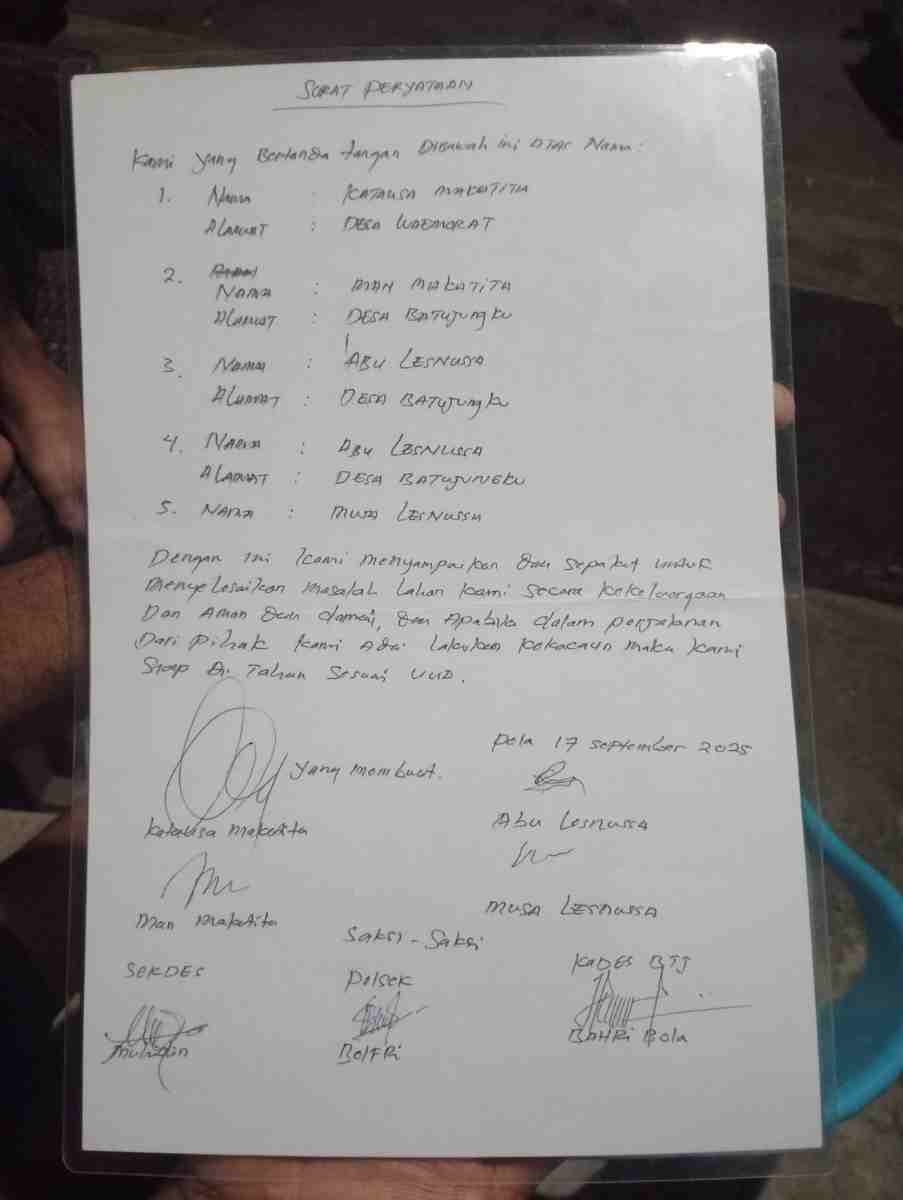 SURAT PERYATAAN
Kami yang Bertanda tangan Dibawah ini ATAS Nama:
1. Nama : KATAUSA MAKATITA
ALAMAT : DESA WAEMORAT
2.
NAMA : MAN MAKATITA
ALAMAT : DESA BATUJUNGKU
3. Nama : ABU LESNUSSA
ALAMAT : DESA BATUJUNGKU
4. NAMA : ABU LESNUSSA
ALAMAT : DESA BATUJUNGKU
5. NAMA : MUSA LESNUSSA
Dengan ini kami menyampaikan dan sepakat untuk
menyelesaikan masalah lahan kami secara kekeluargaan
Dan Aman dan damai, dan Apabila dalam perjalanan
Dari pihak kami Ada lakukan kekacaun maka kami
Siap Di Tahan Sesuai UUD.
pela 17 september 2025
yang membuat.
Katausa Makatita Abu Lesnussa
Man Makatita MUSA LESNUSSA
Saksi - Saksi
SEKDES Polsek KADES BTJ
BOLFRi BAHRi Bola